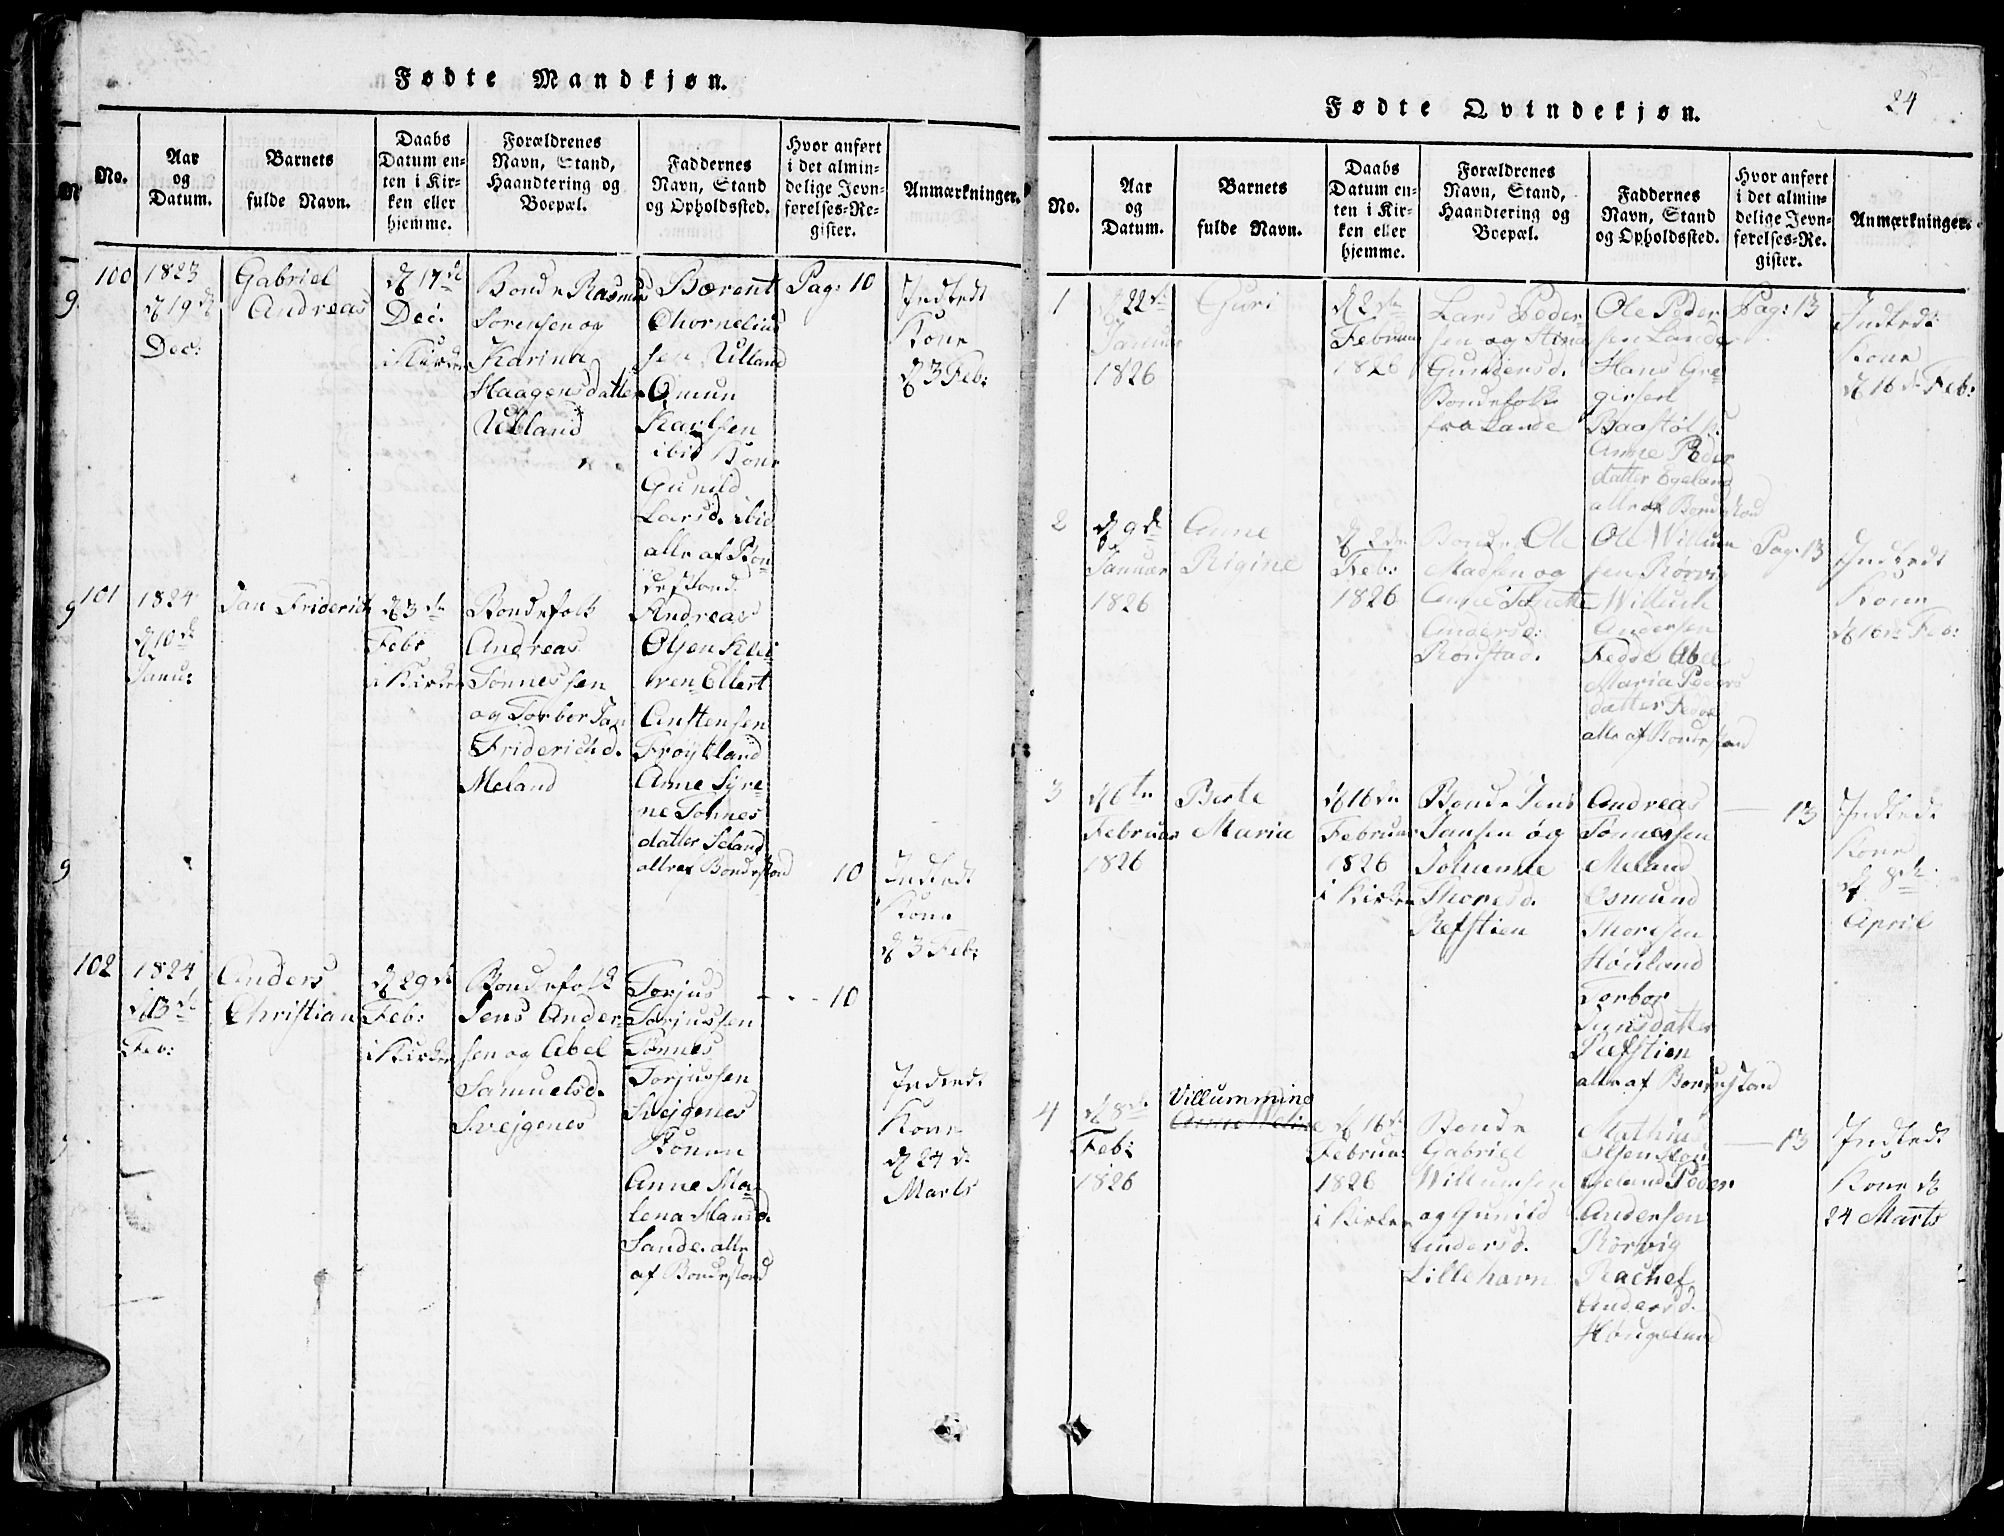 Fødte Mandkjøn.
No.
Aar
og
Datum.
Barnets
fulde Navn.
Daabs
Datum en-
ten i Kir-
ken eller
hjemme.
Forældrenes
Navn, Stand,
Haandtering og
Boepæl.
Faddernes
Navn, Stand
og Opholdssted.
Hvor anført
i det almin-
delige Jevn-
førelses-Re-
gister.
Anmærkninger.
100
1823
d 19 d
Dec:
Gabriel
Andreas
d 17 de
Dec.
i Kirken
Bonde Rasmus
Sørensen og
Karina
Haagensdatter
Ulland
Bærent
Chornelius
sen Ulland
Omun
Karlsen
ibid Kone
Gunild
Larsd. ibid
alle af Bon-
destand.
Pag: 10
Indledt
Kone
d 3 Feb:
101
1824
d 10 de
Janu:
Jan Friderich
d 3 de
Febr
i Kirken
Bondefolk
Andreas
Tønnessen
og Torbor Jan
Friderichd.
Meland
Andreas
Olsen Klei-
ven Ellert
Anstensen
Frøytland
Anne Syre-
ne Tønnes
datter Seland
alle af Bondestand
10
Indledt
Kone
d 3 Feb:
102
1824
d 13 de
Feb:
Anders
Christian
d 29 de
Feb:
i Kirken
Bondefolk
Jens Ander-
sen og Abel
Samuelsd.
Svejgenes
Torjus
Torjussen
Tønnes
Torjussen
Svejgenes
Konen
Anne Ma-
lena Hansd.
Sande. alle
af Bondestand
10
Indledt
Kone
d 24 de
Marts
24
Fødte Qvindekjøn.
No.
Aar
og
Datum.
Barnets
fulde Navn.
Daabs
Datum en-
ten i Kir-
ken eller
hjemme.
Forældrenes
Navn, Stand,
Haandtering og
Boepæl.
Faddernes
Navn, Stand
og Opholdssted.
Hvor anført
i det almin-
delige Jevn-
førelses-Re-
gister.
Anmærkninger.
1
d 22 de
Januar
1826
Guri
d 2 de
Februar
1826
Lars Peder-
sen og Stina
Gundersd.
Bondefolk
fra Lande
Ole Peder
sen Lande
Hans Gre-
gersen
Baastøl K.
Anne Peder
datter Egeland
alle af Bondestand
Pag: 13
Indledt
Kone
d 16 de Feb:
2
d 9 de
Januar
1826
Anne
Rigine
d 2 de
Feb:
1826
Bonde Ole
Madsen og
Anne Torette
Andersd:
Ronstad.
Ole Willum
sen Rørvig
Willum
Andersen
Fedde Abel
Maria Peders
datter Fedde
alle af Bondestand
Pag: 13
Indledt
Kone
d 16 de Feb:
3
d 6 te
Februar
1826
Berte
Maria
d 16 de
Februar
1826
i Kirken
Bonde Jens
Jansen og
Johanne
Thoresd.
Refstien
Andreas
Tønnessen
Meland
Osmund
Thoresen
Høuland
Torbor
Jensdatter
Refstien
alle af Bondestand
13
Indledt
Kone
d 8 de
April
4
d 8 de
Feb:
1826
Villummine
d 16 de
Februar
1826
i Kirken
Bonde
Gabriel
Willumsen
og Gunild
Andersd.
Lillehavn
Mathias
Olsen Høu-
geland Peder
Andersen
Rørvig
Rachel
Andersd.
Høugeland
13
Indledt
Kone d
24 Marts